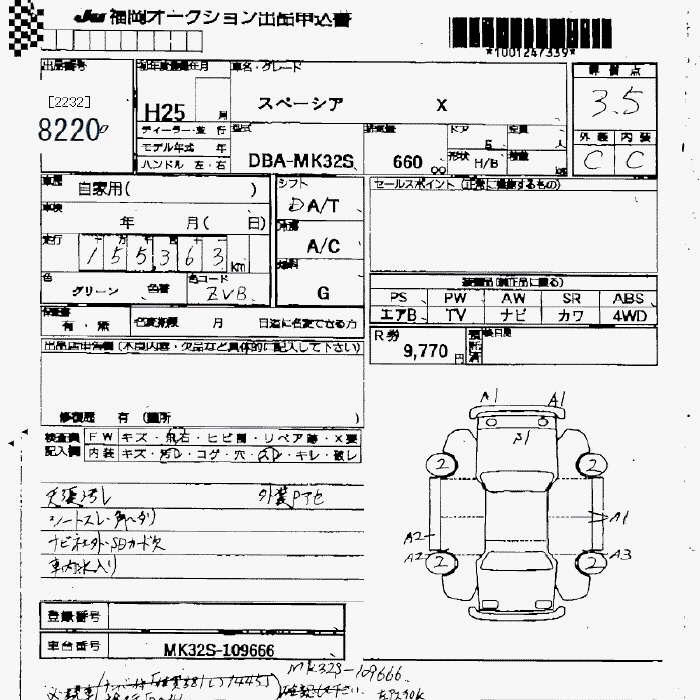 福岡オークション出品申込書
*1001247339*
出品番号
[2232]
8220
初年度登録年月
H25 月
車名・グレード
スペーシア X
評価点
3.5
外装 内装
C C
ディーラー・並行
モデル年式 年
ハンドル 左・右
型式
DBA-MK32S
排気量
660 cc
ドア
5
形状
H/B
定員
人
積載
kg
車歴
自家用( )
車検
年 月( 日)
走行
十 万 千 百 十 一
155363 km
色
グリーン
色替
色コード
ZVB
シフト
D A/T
冷房
A/C
燃料
G
セールスポイント
装備品(純正品に限る)
PS PW AW SR ABS
エアB TV ナビ カワ 4WD
有・無
名変期限 月 日迄に名変できる方
R券
9,770 円
預託済
出品店申告欄(不良内容・欠品など具体的に記入して下さい)
修復歴 有 (箇所 )
検査員記入欄
FW キズ・飛石・ヒビ
・リペア跡・X要
内装 キズ・汚レ・コゲ・穴・スレ・キレ・破レ
天張汚レ
シートスレ
SDカード欠
A1 A1
A1
2 2
A1
A2
A2 A3
2 2
登録番号
車台番号
MK32S-109666
MK32S-109666